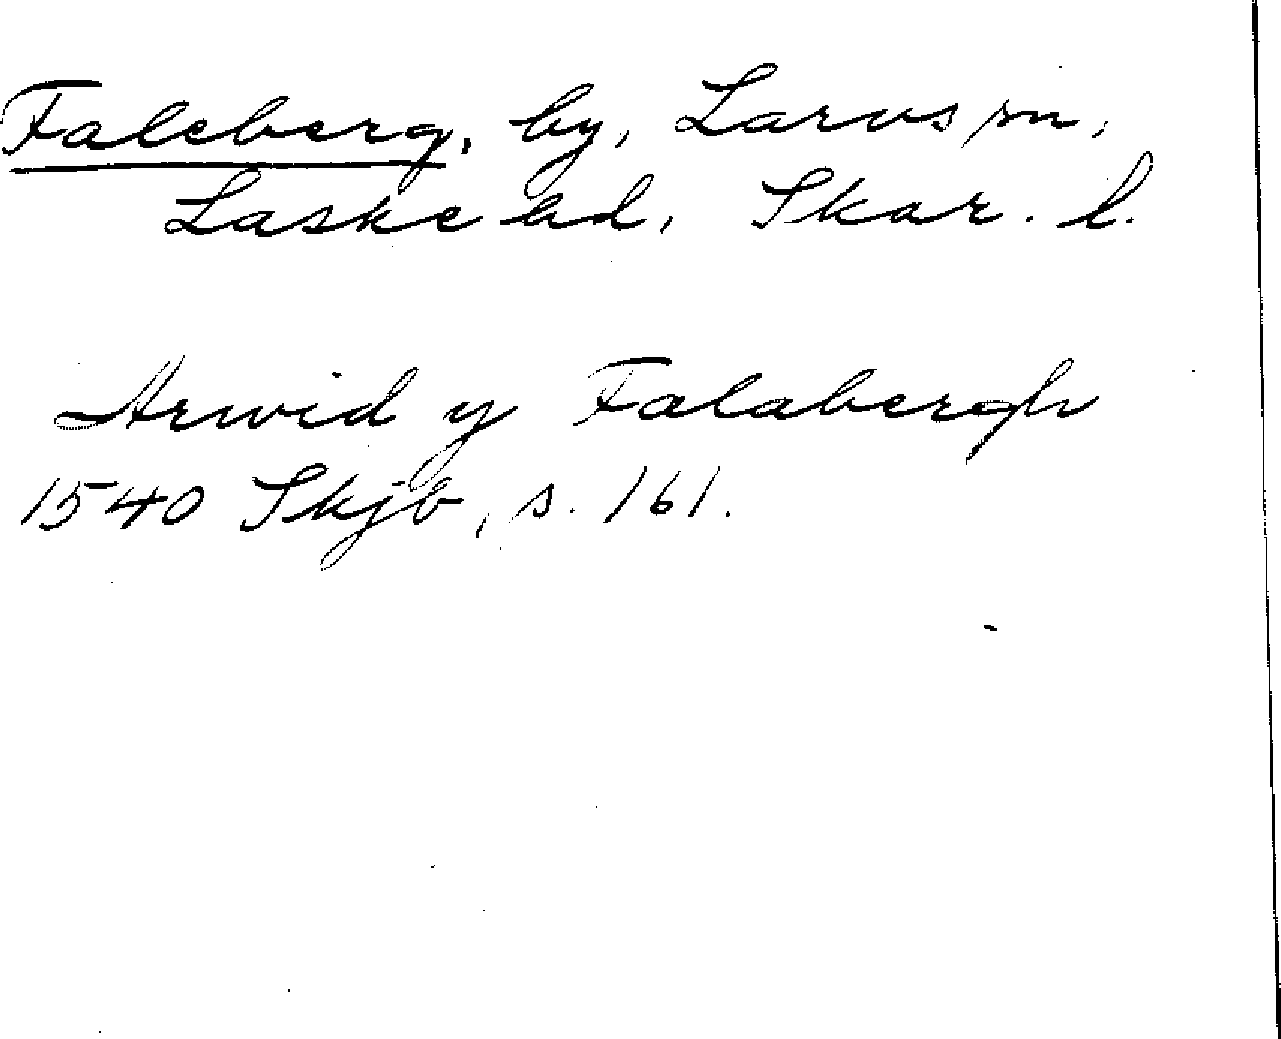 Faleberg, by, Larvs sn,
Laske hd, Skar. l.
Arwid y Falabergh
1540 Skjb, s. 161.